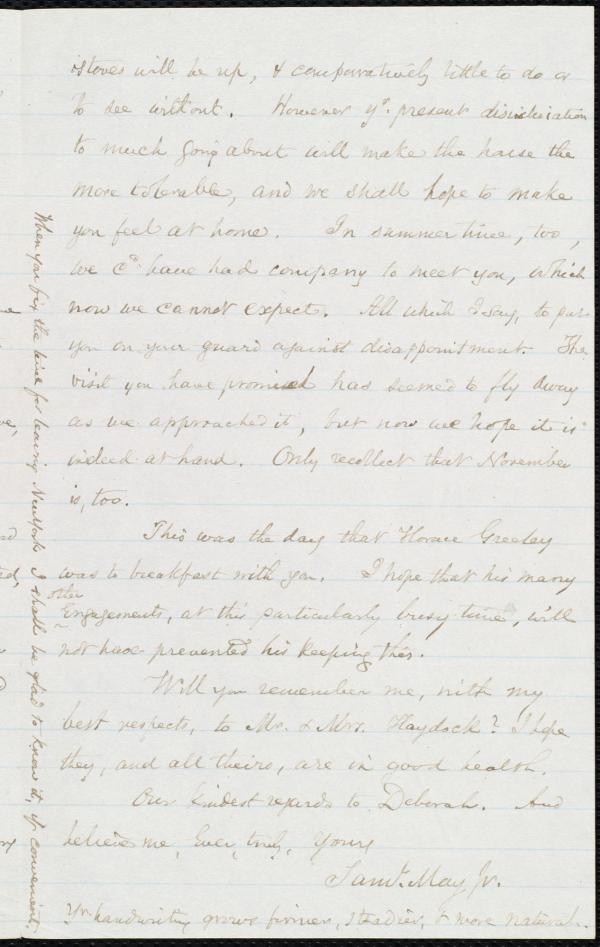 stoves will be up, & comparatively little to do or
to see without. However yr. present disinclination
to much going about will make the house the
more tolerable, and we shall hope to make
you feel at home. In summer time, too,
we cd. have had company to meet you, which
now we cannot expect. All which I say, to put
you on your guard against disappointment. The
visit you have promised has seemed to fly away
as we approached it, but now we hope it is
indeed at hand. Only recollect that November
is, too.
This was the day that Horace Greeley
was to breakfast with you. I hope that his many
other
Engagements, at this particularly busy time, will
not have prevented his keeping this.
Will you remember me, with my
best respects, to Mr. & Mrs. Haydock? I hope
they, and all theirs, are in good health.
Our kindest regards to Deborah. And
believe me, Ever, truly, Yours
Saml. May Jr.
Yr. handwriting grows firmer, steadier, & more natural.
When you fix the time for leaving New York I shall be glad to know it, if convenient.